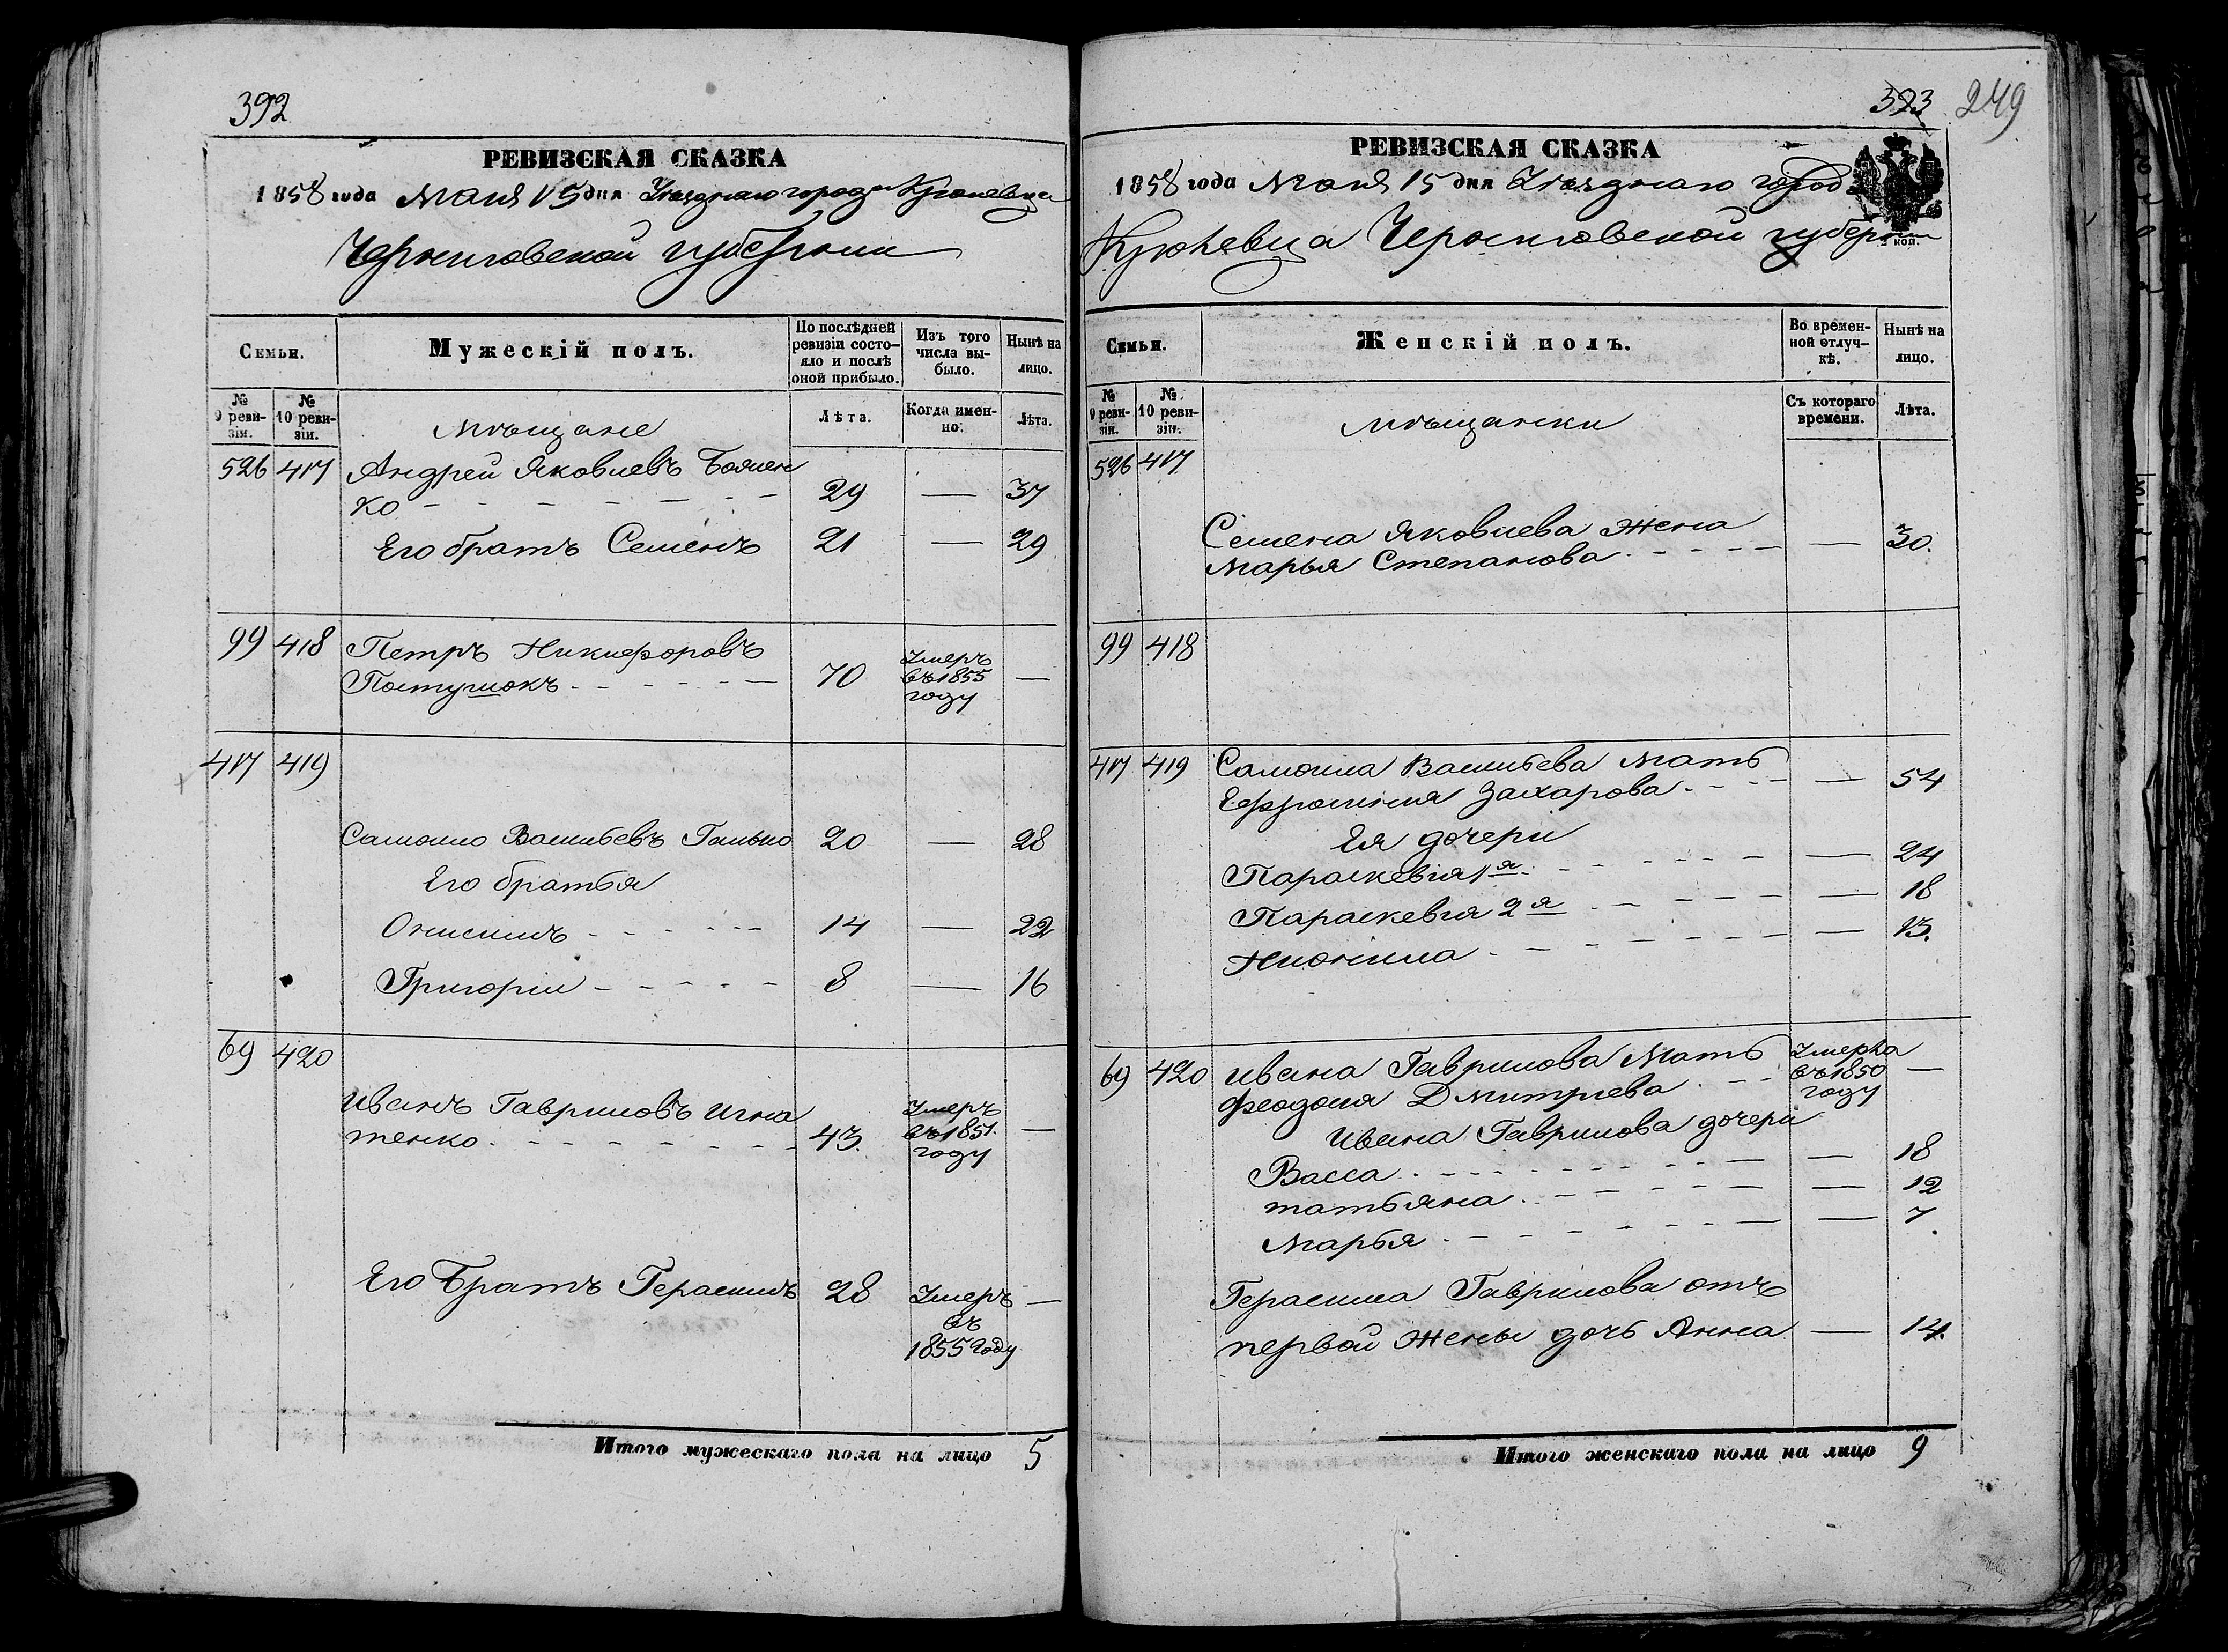 392
РЕВИЗСКАЯ СКАЗКА
1858 года Мая 15 дня Уѣзднаго города Кролевца
Черниговской губерніи
Семьи.
Мужескій полъ.
По послѣдней ревизіи состо-
яло и послѣ
оной прибыло.
Изъ того
числа вы-
было.
Нынѣ на
лицо.
№
9 реви-
зіи.
№
10 реви-
зіи.
Мѣщане
Лѣта.
Когда имен-
но.
Лѣта.
526 417 Андрей Яковлевъ
ко 29 — 37
Его братъ Семенъ 21 — 29
99 418 Петръ Никифоровъ
Пастушокъ 70 Умеръ
въ 1855
году —
417 419
Самоило Васильевъ Галько 20 — 28
Его братья
Онисимъ 14 — 22
Григорій 8 — 16
69 420
Иванъ Гавриловъ Игна
тенко 43. Умеръ
въ 1851.
году —
Его Братъ Герасимъ 28 Умеръ
въ
1855 году —
Итого мужескаго пола на лицо 5
393 249
РЕВИЗСКАЯ СКАЗКА
1858 года Мая 15 дня Уѣзднаго город
Кролевца Черниговской губерніи
коп.
Семьи.
Женскій полъ.
Во времен-
ной отлуч-
кѣ.
Нынѣ на
лицо.
№
9 реви-
зіи.
№
10 реви-
зіи.
Мѣщанки
Съ котораго
времени.
Лѣта.
526 417
Семена Яковлева жена
Марья Степанова — 30.
99 418
417 419 Самоила Васильева Мать
Ефросинія Захарова — 54
Ея дочери
Параскевія 1я — 24
Параскевія 2я — 18
Неонила — 13.
69 420 Ивана Гаврилова Мать
Феодосія Дмитріева Умерла
въ 1850
году —
Ивана Гаврилова дочери
Васса — 18
татьяна — 12
Марья — 7
Герасима Гаврилова отъ
первой жены дочь Анна — 14.
Итого женскаго пола на лицо 9